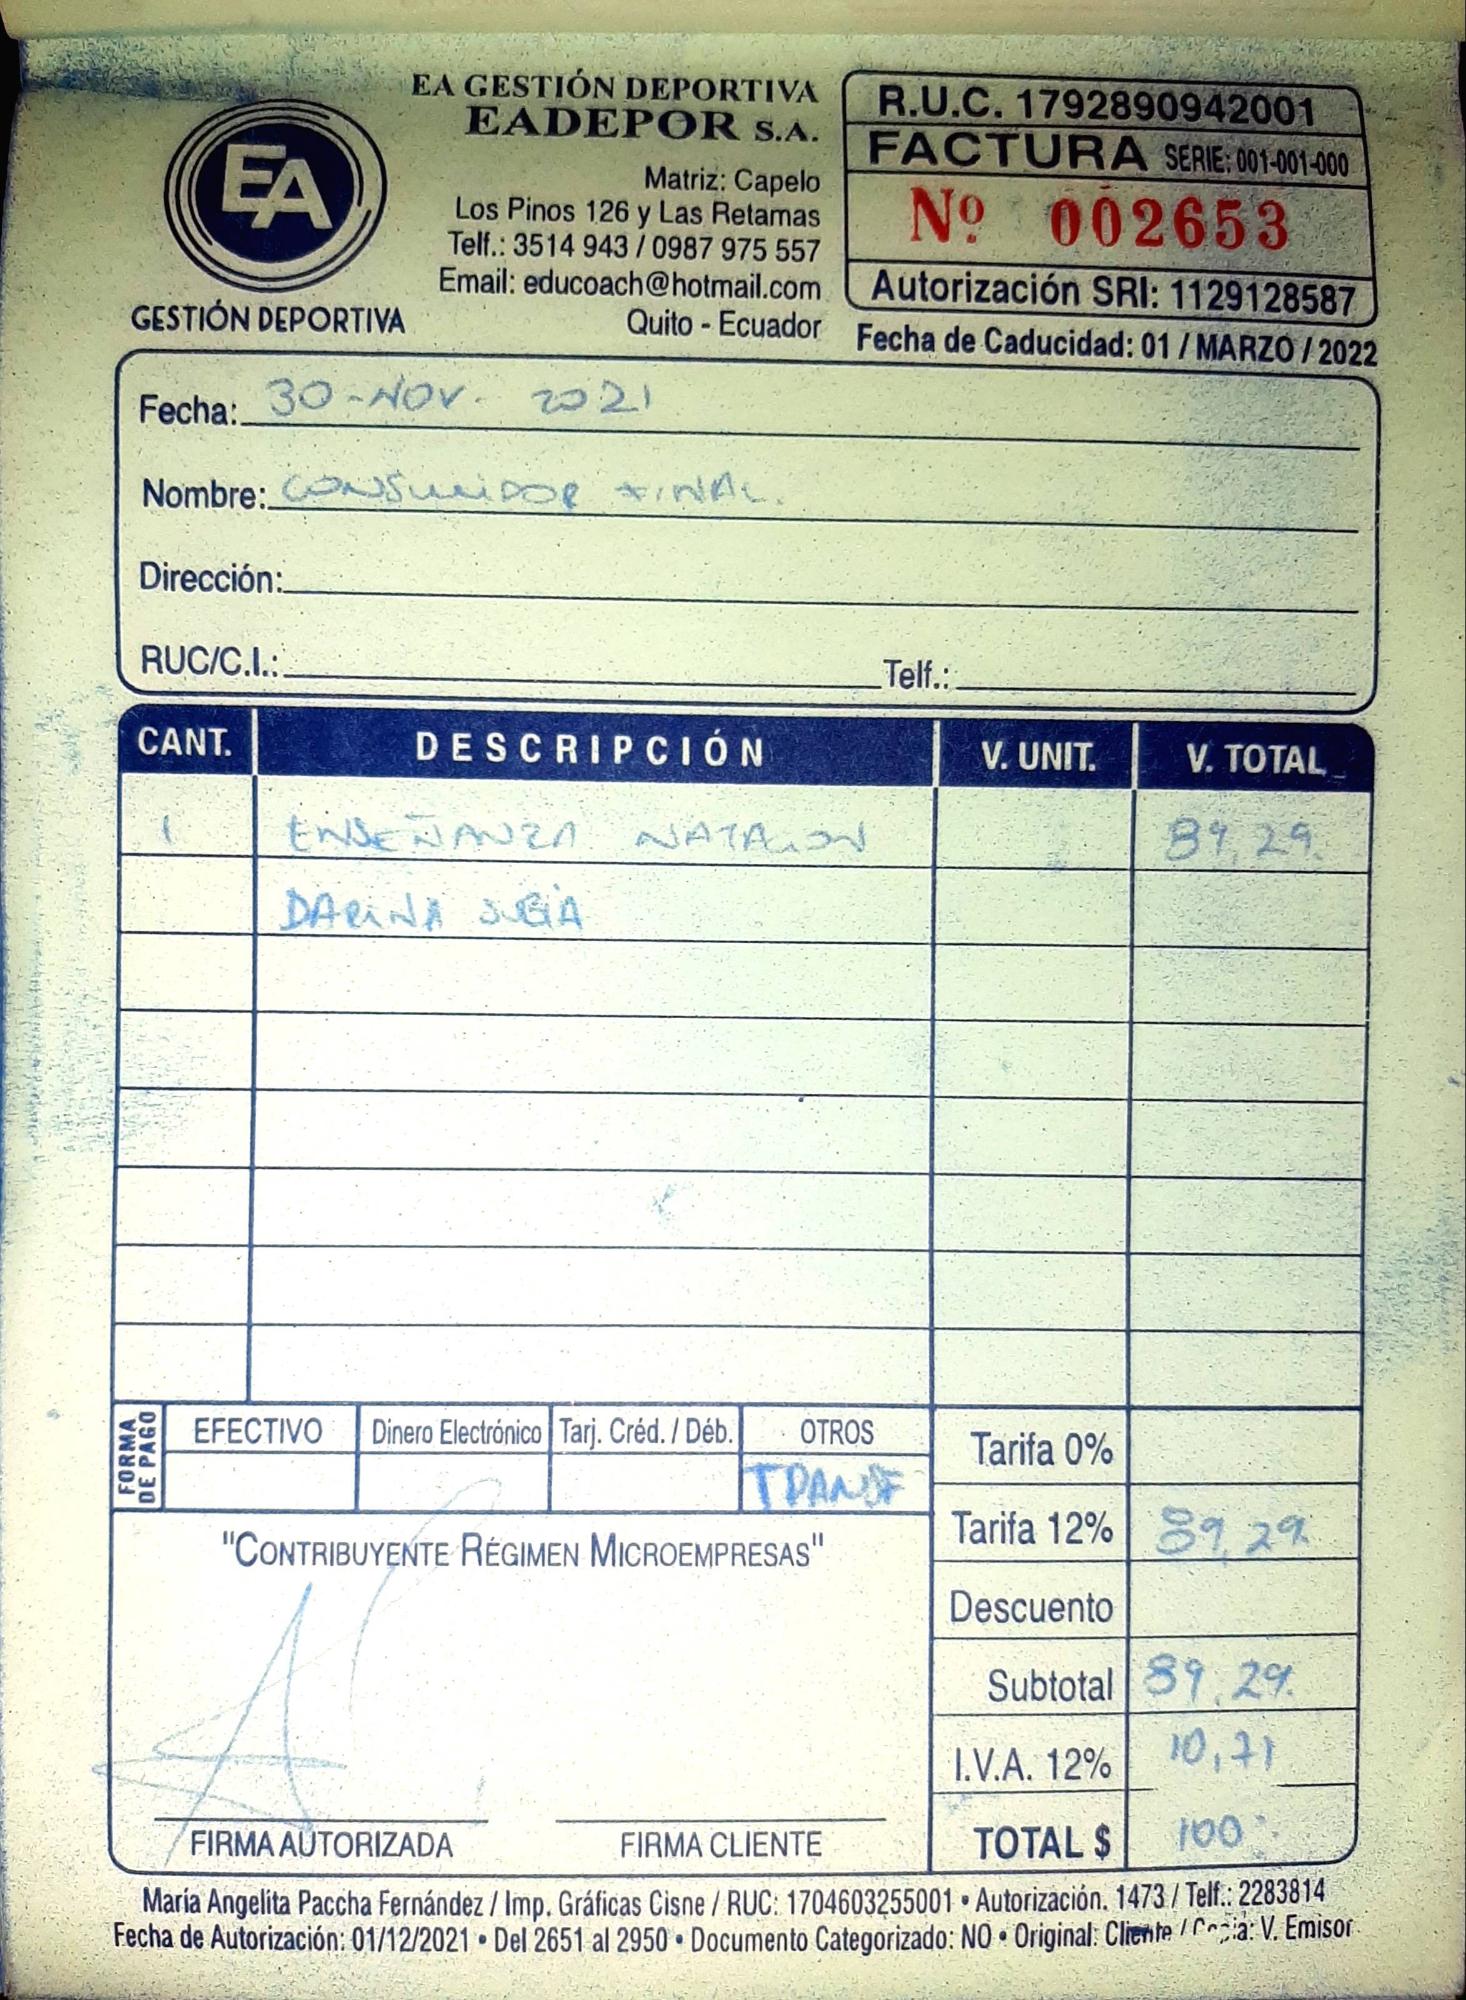 EA GESTIÓN DEPORTIVA
EADEPOR S.A.
EA
GESTIÓN DEPORTIVA
Matriz: Capelo
Los Pinos 126 y Las Retamas
Telf.: 3514 943 / 0987 975 557
Email: educoach@hotmail.com
Quito - Ecuador
R.U.C. 1792890942001
FACTURA SERIE: 001-001-000
Nº 002653
Autorización SRI: 1129128587
Fecha de Caducidad: 01 / MARZO / 2022
Fecha: 30-NOV. 2021
Nombre: CONSUMIDOR FINAL.
Dirección:
RUC/C.I.: Telf.:
CANT. DESCRIPCIÓN V. UNIT. V. TOTAL
1 ENSEÑANZA NATACION 89,29.
DARINA
FORMA DE PAGO
EFECTIVO Dinero Electrónico Tarj. Créd. / Déb. OTROS
TRANSF
Tarifa 0%
Tarifa 12% 89,29
Descuento
Subtotal 89,29.
I.V.A. 12% 10,71
TOTAL $ 100
"CONTRIBUYENTE RÉGIMEN MICROEMPRESAS"
FIRMA AUTORIZADA FIRMA CLIENTE
María Angelita Paccha Fernández / Imp. Gráficas Cisne / RUC: 1704603255001 • Autorización. 1473 / Telf.: 2283814
Fecha de Autorización: 01/12/2021 • Del 2651 al 2950 • Documento Categorizado: NO • Original: Cliente / Copia: V. Emisor